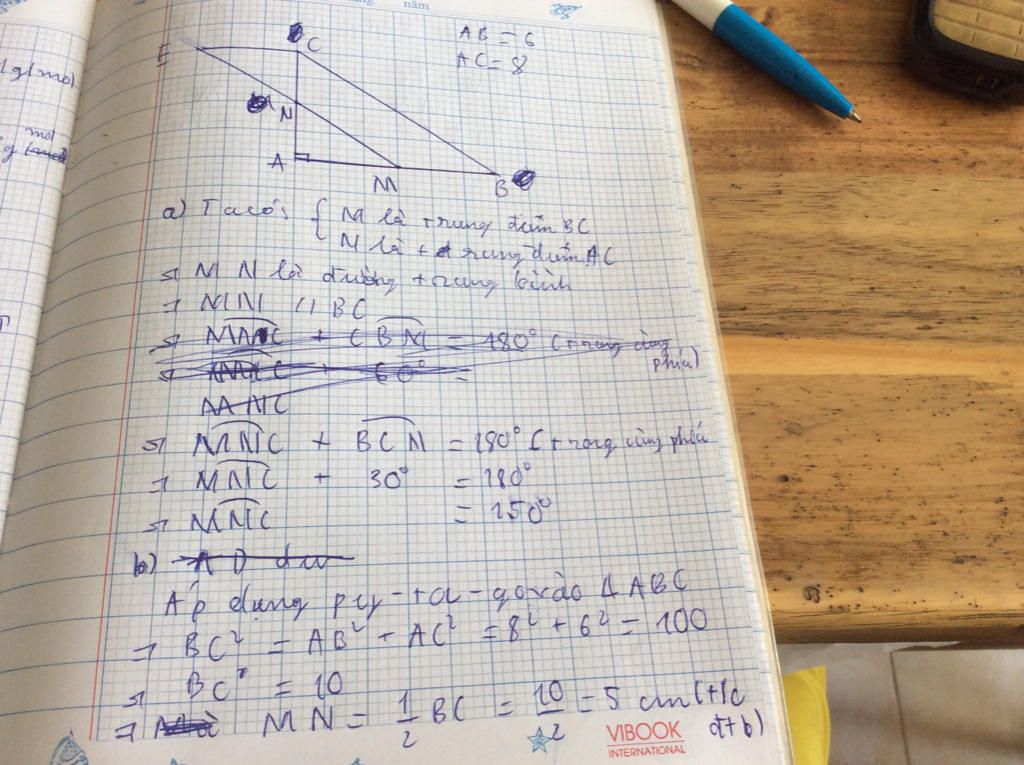 năm
AB = 6
AC = 8
E
C
N
A
M
B
g(mol)
mol
g
a) Ta có: { M là trung điểm BC
N là trung điểm AC
=> MN là đường trung bình
=> MN // BC
=> MNC + CBM = 180° (trong cùng phía)
=> 60° =
=> MNC + BCN = 180° (trong cùng phía
=> MNC + 30° = 180°
=> MNC = 150°
b)
Áp dụng py-ta-go vào Δ ABC
=> BC² = AB² + AC² = 8² + 6² = 100
=> BC² = 10
=> MN = 1/2 BC = 10/2 = 5 cm (t/c
đtb)
VIBOOK
INTERNATIONAL